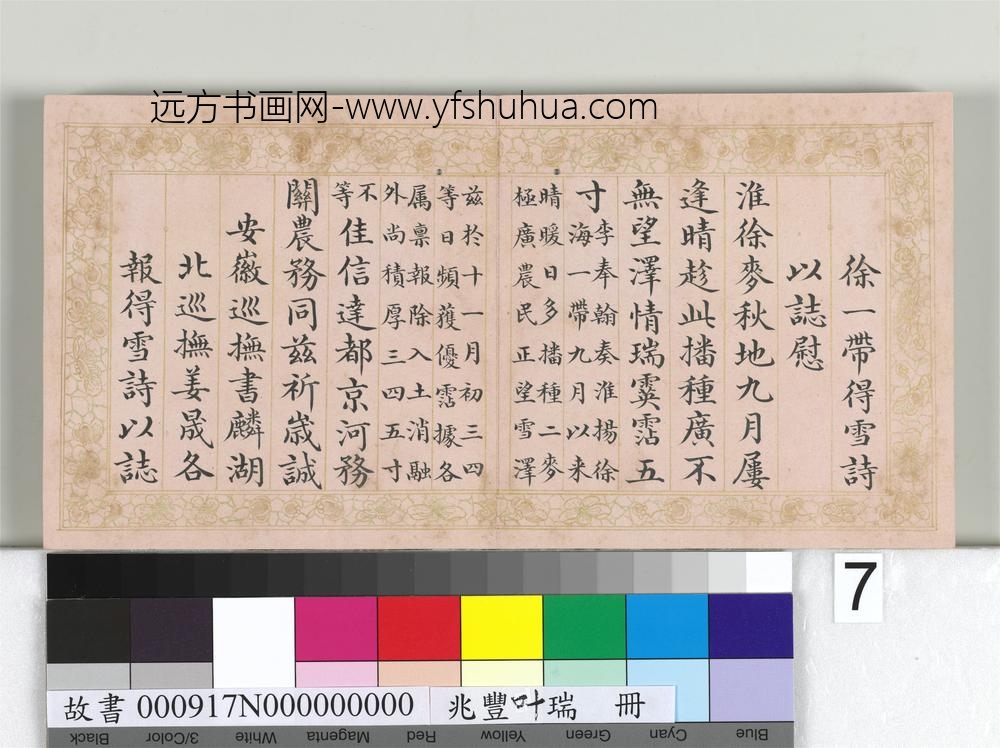 远方书画网-www.yfshuhua.com
徐一帶得雪詩
以誌慰
淮徐麥秋地九月屢
逢晴趁此播種廣不
無望澤情瑞霙霑五
寸李奉翰奏淮揚徐
海一帶九月以来
晴暖日多播種二麥
極廣農民正望雪澤
兹於十一月初三四
等日頻獲優霑據各
属禀報除入土消融
外尚積厚三四五寸
不等佳信達都京河務
關農務同兹祈歲誠
安徽巡撫書麟湖
北巡撫姜晟各
報得雪詩以誌
7
故書 000917N000000000 兆豐叶瑞 冊
Black 3/Color White Magenta Red Yellow Green Cyan Blue